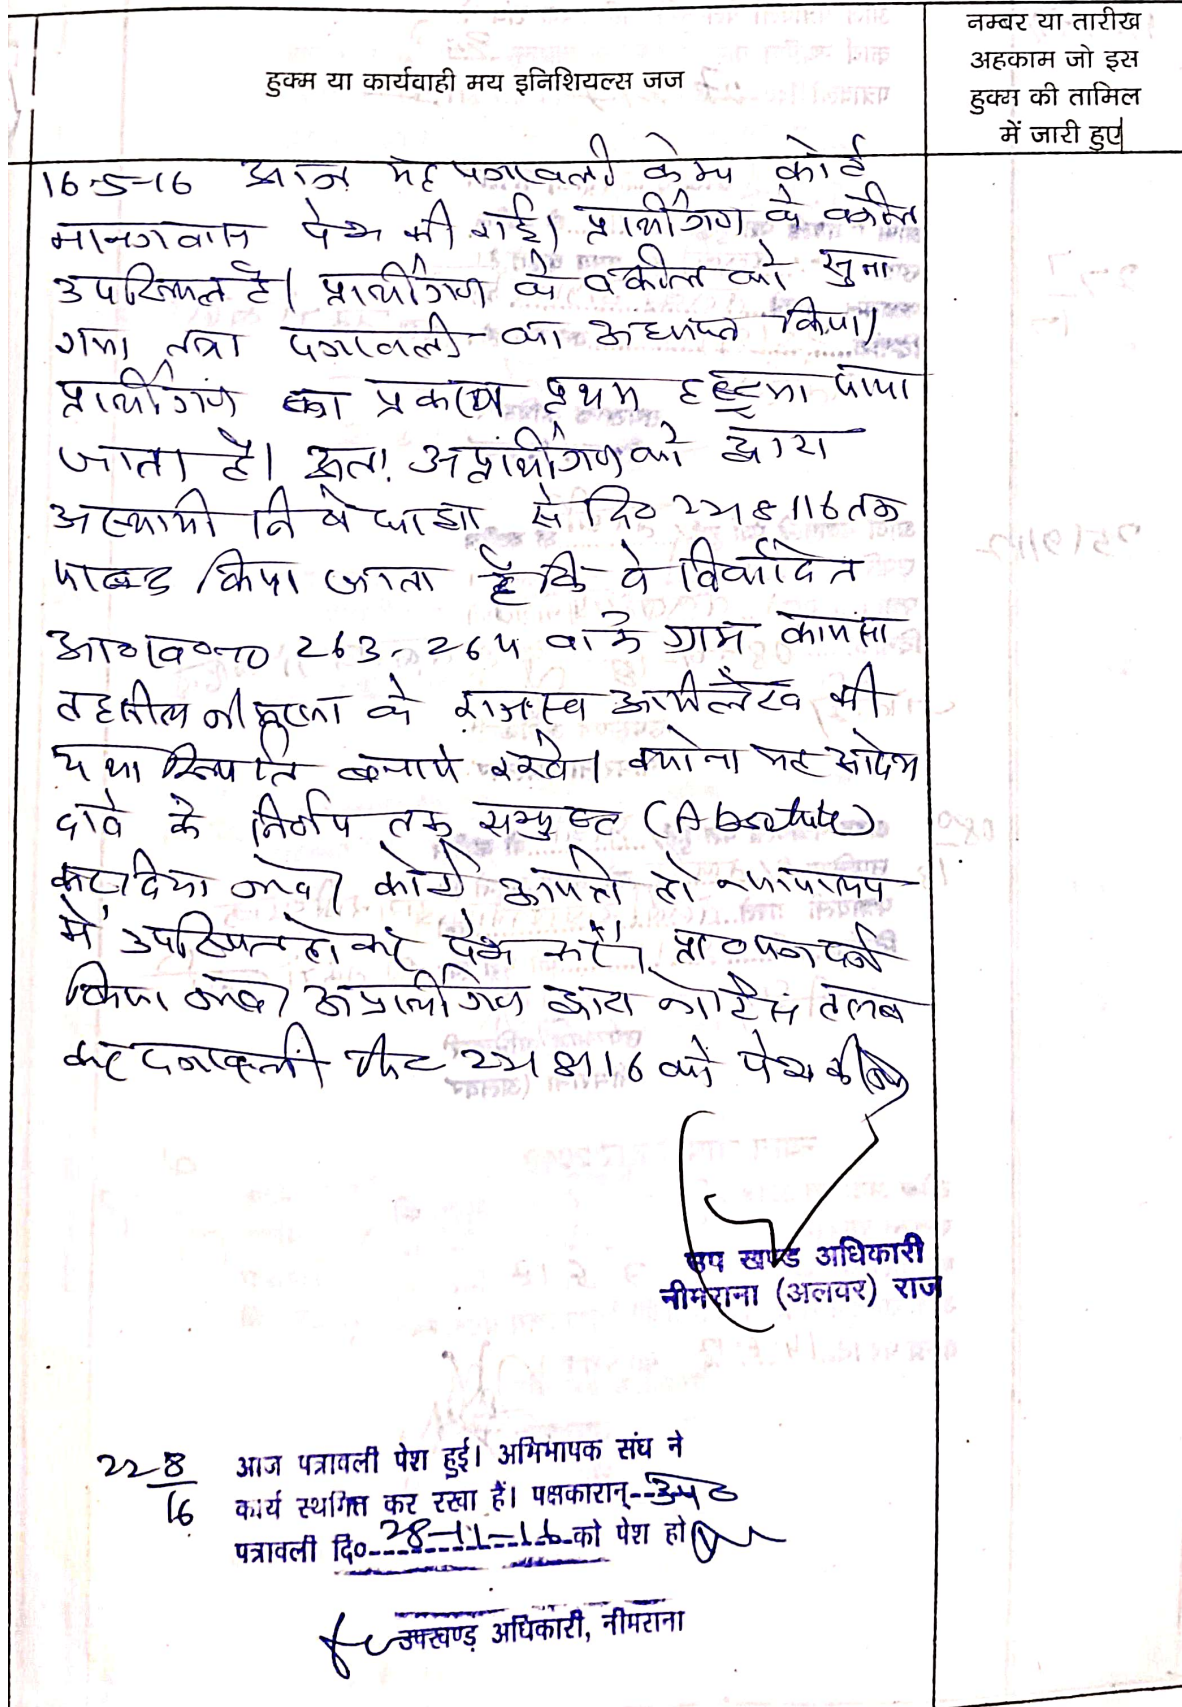 हुक्म या कार्यवाही मय इनिशियल्स जज
नम्बर या तारीख
अहकाम जो इस
हुक्म की तामिल
में जारी हुए
16-5-16 आज यह पत्रावली केम्प कोर्ट
पेश की गई। प्रार्थीगण के वकील
उपस्थित है। प्रार्थीगण के वकील को सुना
गया तथा पत्रावली का अध्ययन किया।
प्रार्थीगण का प्रकरण प्रथम दृष्टया पाया
जाता है। अतः अप्रार्थीगण को द्वारा
अस्थायी निषेधाज्ञा से दि० 22/8/16 तक
पाबन्द किया जाता है कि वे विवादित
263, 264 वाके ग्राम
तहसील नीमराना के राजस्व अभिलेख की
यथा स्थिति बनाये रखे। क्यों ना यह आदेश
दावे के निर्णय तक सम्पुष्ट (Absolute)
कर दिया जावे। कोई आपत्ति हो न्यायालय
में उपस्थित होकर पेश करें। प्रा० पत्र दर्ज
किया जावे। अप्रार्थीगण द्वारा नोटिस तलब
कर पत्रावली 22/8/16 को पेश
उप खण्ड अधिकारी
नीमराना (अलवर) राज
22-8/16 आज पत्रावली पेश हुई। अभिभाषक संघ ने
कार्य स्थगित कर रखा हैं। पक्षकारान्--उप०
पत्रावली दि० 28-11-16 को पेश हो
उपखण्ड अधिकारी, नीमराना